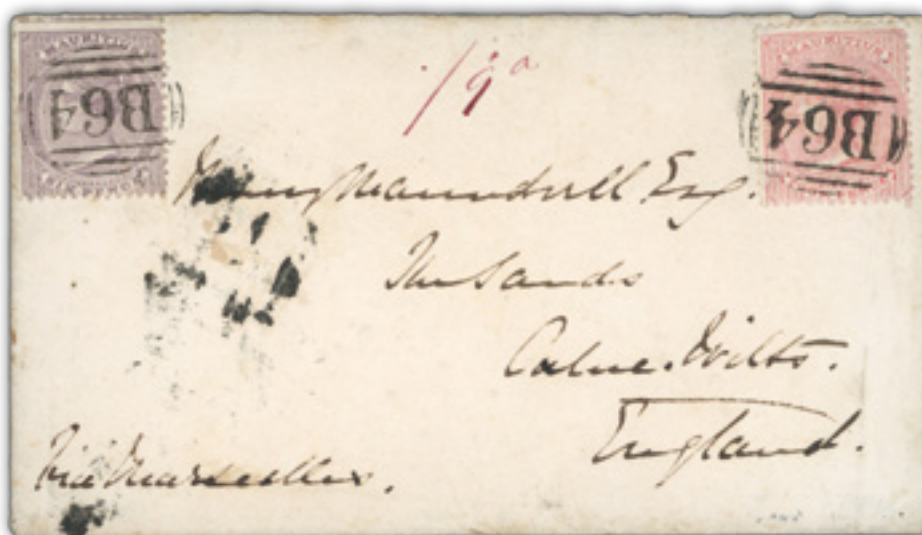 MAURITIUS
B64
SIX PENCE
MAURITIUS
B64
1/9d
Henry Maundrell Esq.
The Sands
Calne. Wilts.
England.
Via Marseilles.